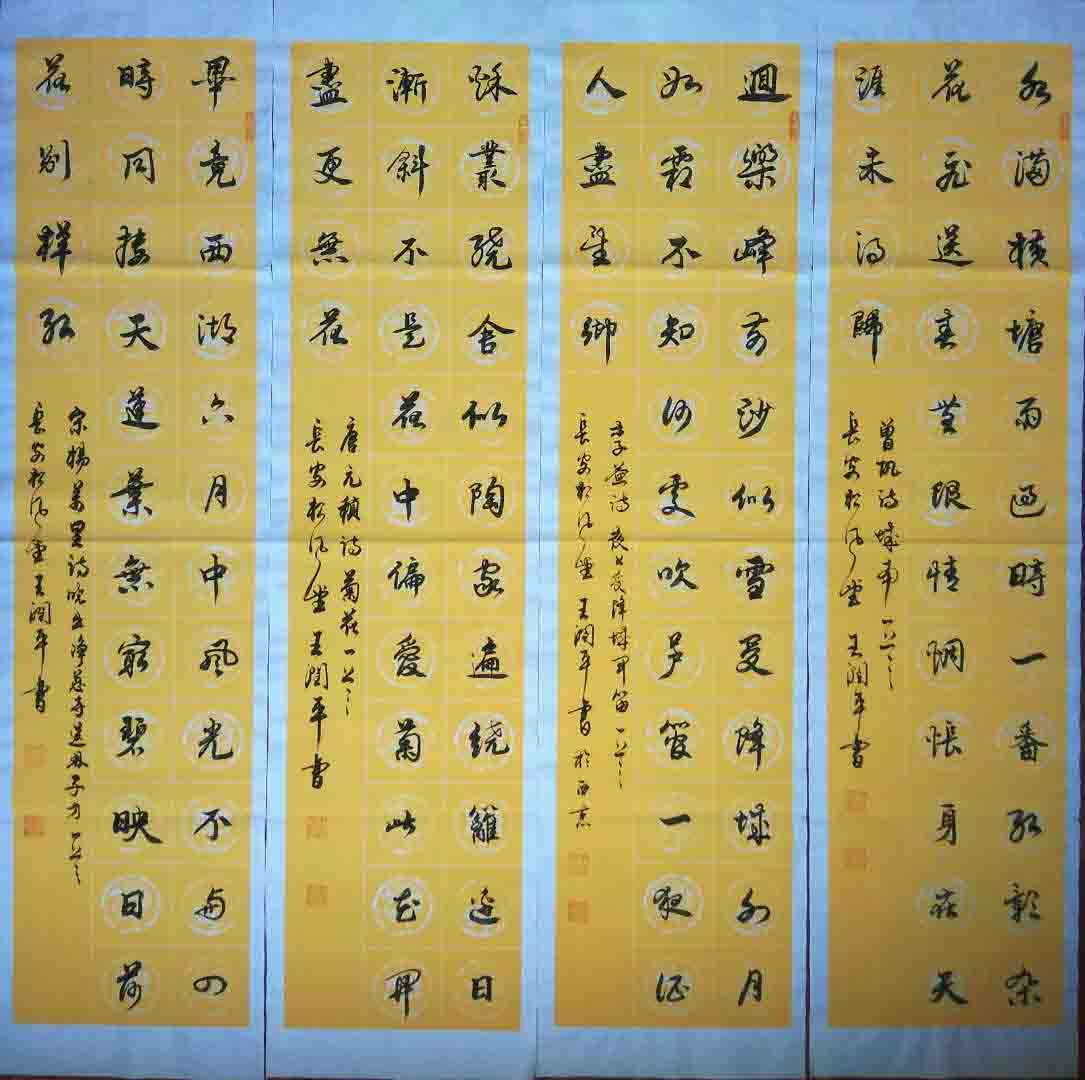 水满横塘雨过時一番红影杂
花飛送春無限情惆悵身在天
涯未得歸
曾巩诗城南一首
長安松风堂王潤平書
迴樂峰前沙似雪受降城外月
如霜不知何處吹芦管一夜征
人盡望鄉
李益诗夜上受降城聞笛一首
長安松风堂王潤平書於西京
秋叢绕舍似陶家遍绕籬边日
漸斜不是花中偏愛菊此花開
盡更無花
唐元稹诗菊花一首
長安松风堂王潤平書
畢竟西湖六月中風光不与四
時同接天蓮葉無窮碧映日荷
花别樣红
宋楊萬里诗晓出净慈寺送林子方一首
長安松风堂王潤平書